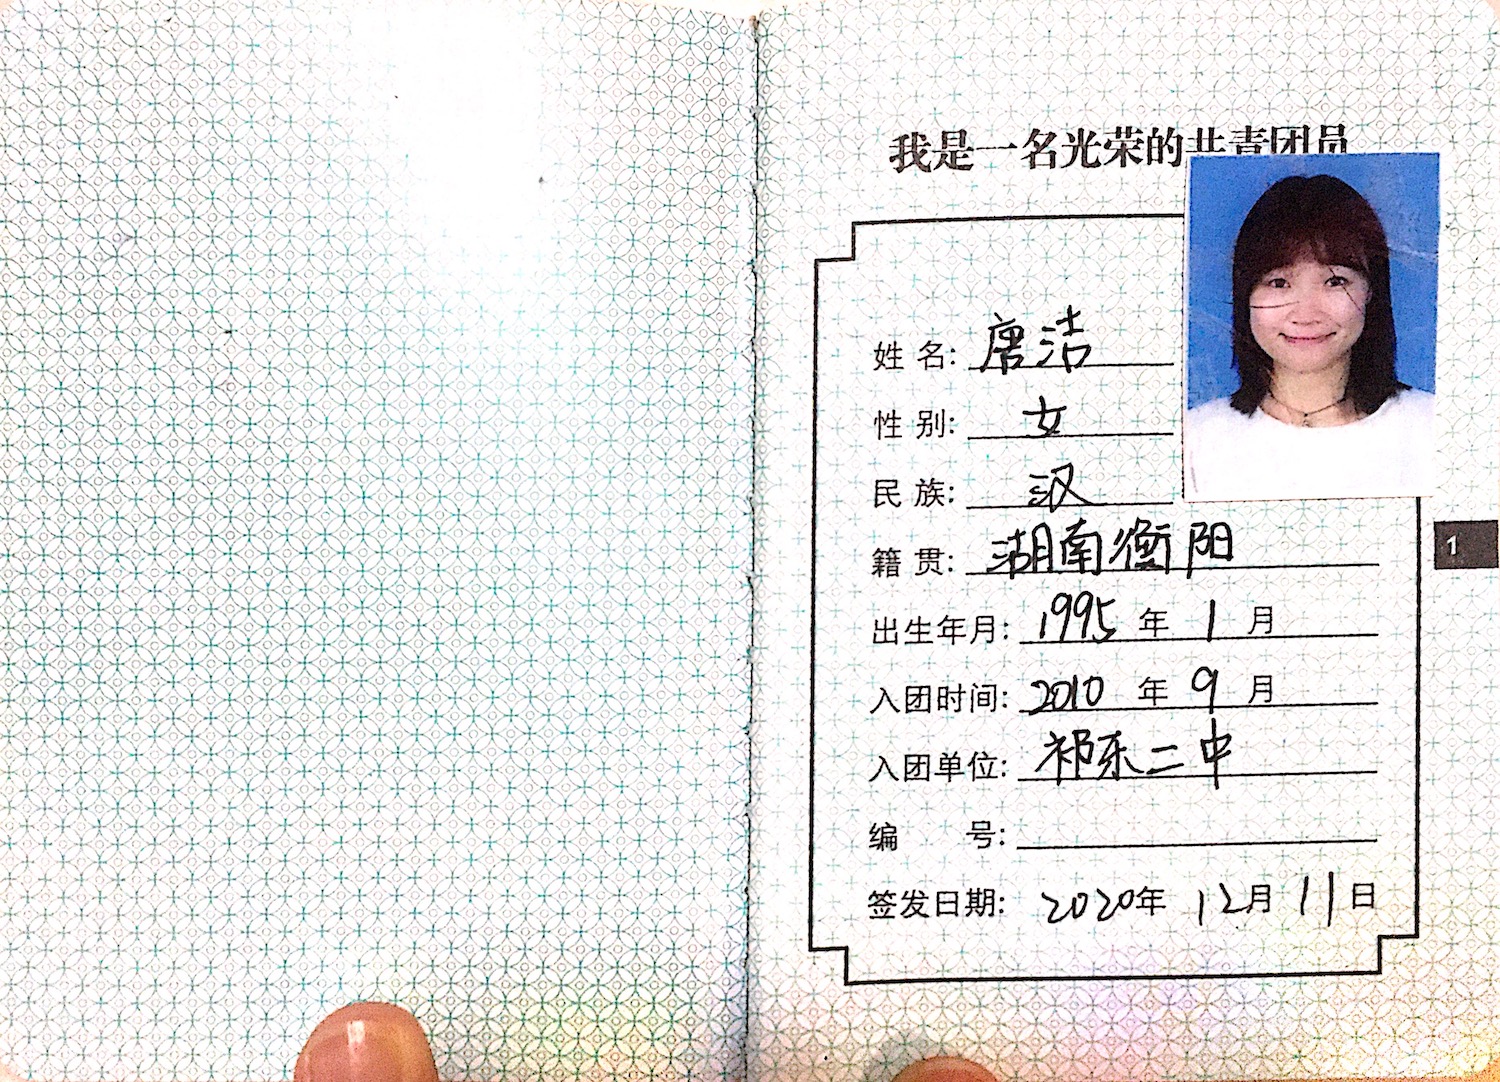 我是一名光荣的共青团员
姓 名: 唐洁
性 别: 女
民 族: 汉
籍 贯: 湖南衡阳
1
出生年月: 1995 年 1 月
入团时间: 2010 年 9 月
入团单位: 祁东二中
编 号:
签发日期: 2020年 12月 11日